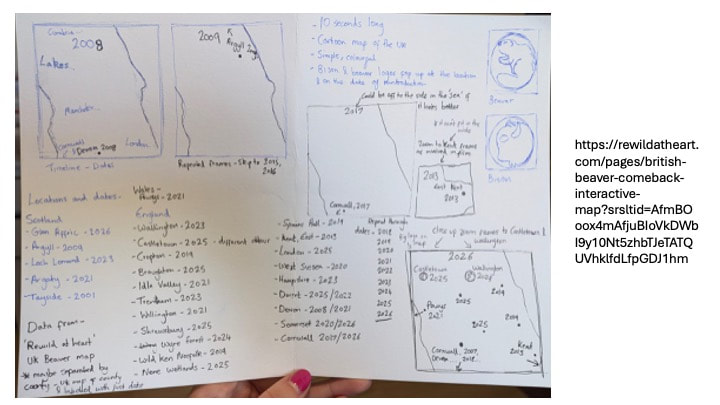 2008
Cumbria
Lakes
Cornwall
Devon 2008
London
Timeline - Dates
2009
Argyll 2009
Repeated frames - Skip to 2015,
2016
- 10 seconds long
- Cartoon map of the UK
- Simple, colourful
- Bison & beaver logos pop up at the location
& on the date of reintroduction
Beaver
Bison
Could be off to the side in the 'sea' if
it looks better
2017
Cornwall, 2017
Zoom to Kent frame
2013
East Kent
2013
Locations and dates -
Scotland
- Glen Affric, - 2026
- Argyll - 2009
- Loch Lomond - 2023
- Argaty - 2021
- Tayside - 2001
Data from -
'Rewild at heart'
UK Beaver map
* maybe separated by
county - UK map of county
& labelled with first date
Wales -
- 2021
England
- Wallington - 2023
- Castletown - 2025 - different colour
- Cropton - 2019
- Broughton - 2025
- Idle Valley - 2021
- Trentham - 2023
- Willington - 2021
- Shrewsbury - 2025
- Wyre Forest - 2024
- Wild Ken - 2019
- Nene Wetlands - 2025
- Spains Hall - 2019
- Kent, East - 2013
- London - 2025
- West Sussex - 2020
- Hampshire - 2023
- Dorset - 2025/2022
- Devon - 2008/2021
- Somerset 2020/2026
- Cornwall 2017/2026
through
dates - 2018
2019
2020
2021
2022
2023
2024
2025
2026
close up zoom frames to Castletown &
Wallington
2026
Castletown
2025
Wallington
2023
2019
2025
2021
2025
2019
Kent
2013
Cornwall, 2017
Devon
2008
https://rewildatheart.
com/pages/british-
beaver-comeback-
interactive-
map?srsltid=AfmBO
oox4mAfjuBIoVkDWb
I9y10Nt5zhbTJeTATQ
UVhklfdLfpGDJ1hm